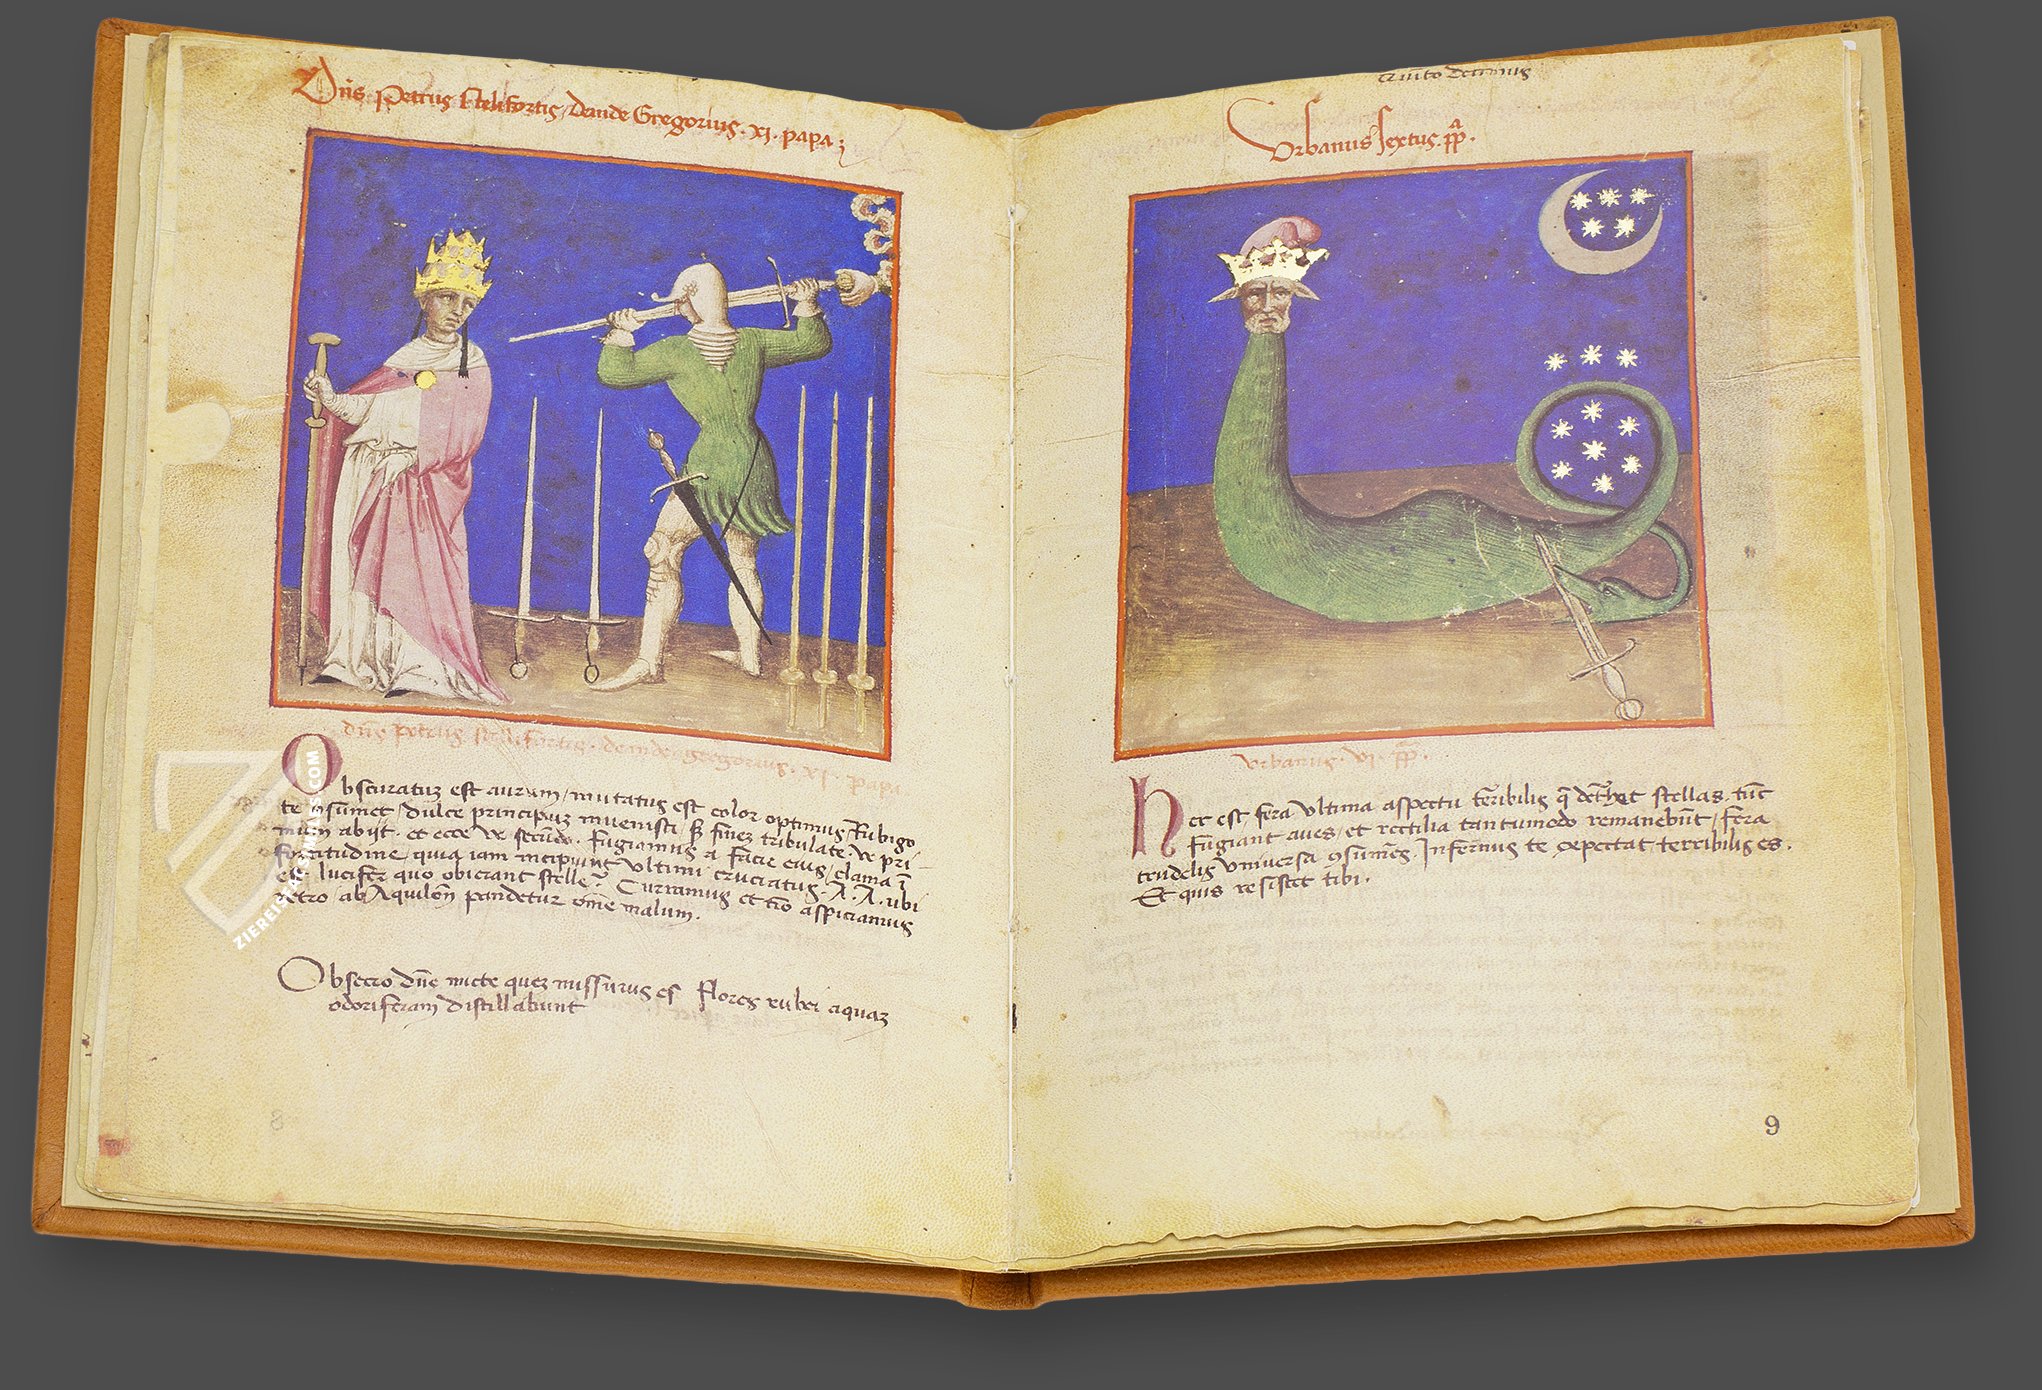 Dn̄s Petrus Stelifortis, Deinde Gregorius · xi · papa;
dn̄s petrus stelifortis · deinde gregorius · xi · papa
Obscuratuʒ est aurum, mutatus est color optimus, Rubigo
te ꝯsumet, dulce principuʒ inuenisti, fineʒ tribulate · ve pri
mum abijt · et ecce ve secūdo · fugiamus a facie eius, clama ī
fortitudine, quia iam incipiunt ultimi cruciatus · A · A · ubi
est lucifer quo obierant stelle? Curramus et nō aspiciamus
retro, ab Aquilon̄ pandetur om̄e malum ·
Obsecro dn̄e micte queʒ missurus es flores rubei aquaʒ
odoriferam distillabunt
8
quinto decimus
Urbanus Sextus · pp̄ ·
urbanus · vi · pp̄ ·
Hec est fera ultima aspectu terribilis stellas · tūc
fugiant aues, et rectilia tantumodo remanebūt, fera
crudelis universa ꝯsumēs · Infernus te expectat, terribilis es ·
Et quis resistet tibi ·
9
ZIEREIS FACSIMILES.COM